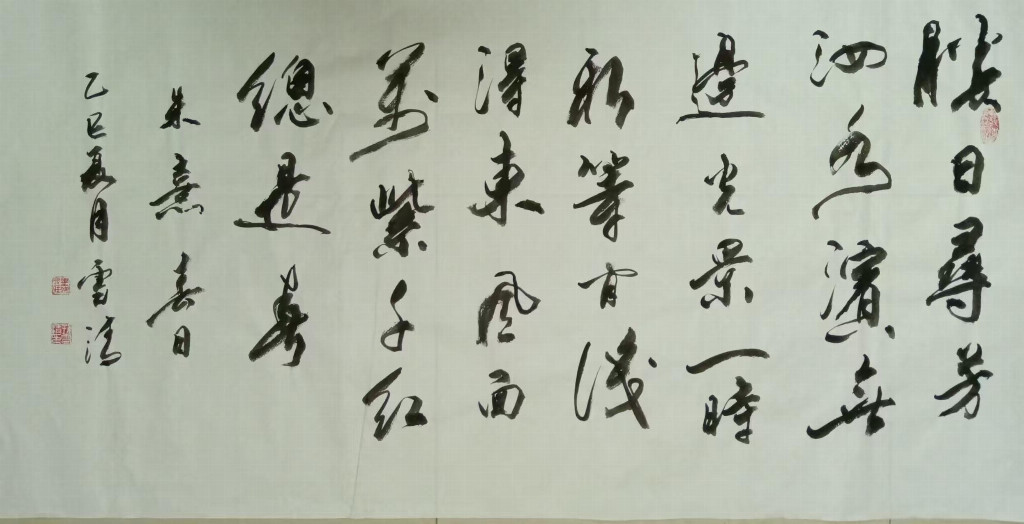 勝日尋芳
泗水濱無
邊光景一時
新等閒識
得東風面
萬紫千紅
總是春
朱熹春日
乙巳夏月雪清